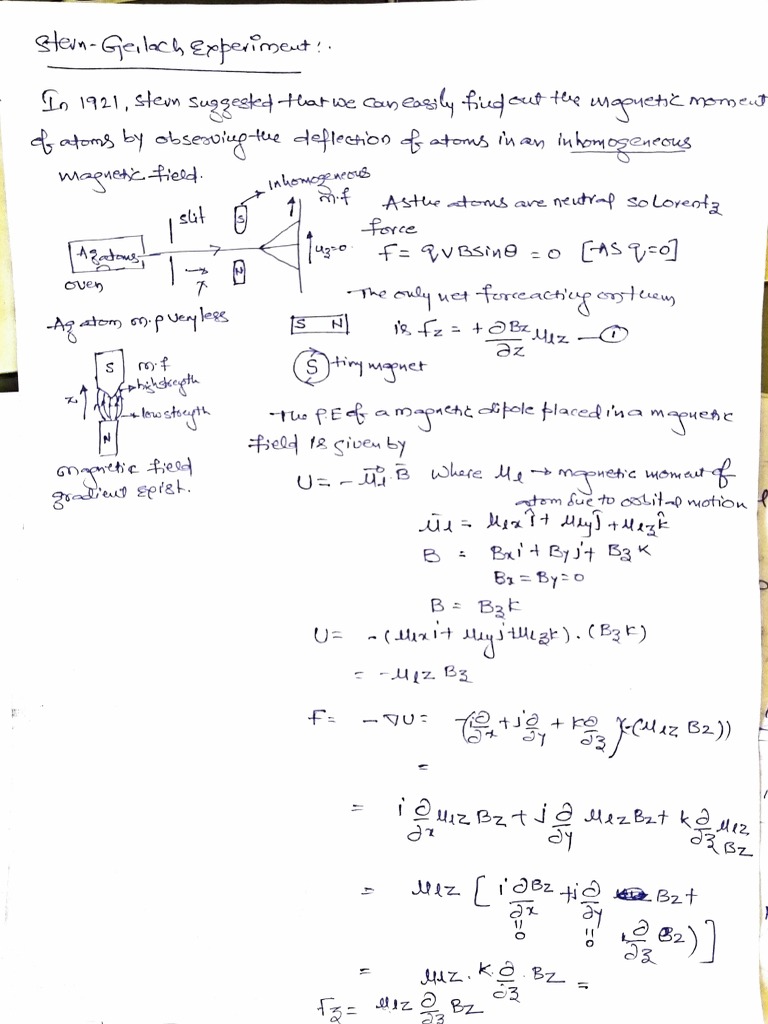 Stern-Gerlach Experiment:.
In 1921, Stern suggested that we can easily find out the magnetic moment
of atoms by observing the deflection of atoms in an inhomogeneous
magnetic field.
Inhomogeneous
m.f
slit
S
As the atoms are neutral so Lorentz
force
Ag atoms
oven
N
F = qVBsinθ = 0 [As q=0]
The only net force acting on them
Ag atom m.p very less
S N
is Fz = +∂Bz/∂z μlz —①
S tiny magnet
S
m.f
high strength
z
low strength
N
magnetic field
gradient
The P.E of a magnetic dipole placed in a magnetic
field is given by
U = -μl.B where μl → magnetic moment of
atom due to orbital motion
μl = μlxî + μlyĵ + μlzk̂
B = Bxi + Byj + Bzk
Bx = By = 0
B = Bzk
U = -(μlxi + μlyj + μlzk).(Bzk)
= -μlz Bz
F = -∇U = -(i∂/∂x + j∂/∂y + k∂/∂z)(-(μlz Bz))
=
= i ∂/∂x μlz Bz + j ∂/∂y μlz Bz + k ∂/∂z μlz Bz
= μlz [i ∂Bz/∂x + j ∂/∂y Bz +
k ∂/∂z Bz)]
" 0 " 0
= μlz . k . ∂/∂z . Bz =
Fz = μlz ∂/∂z Bz